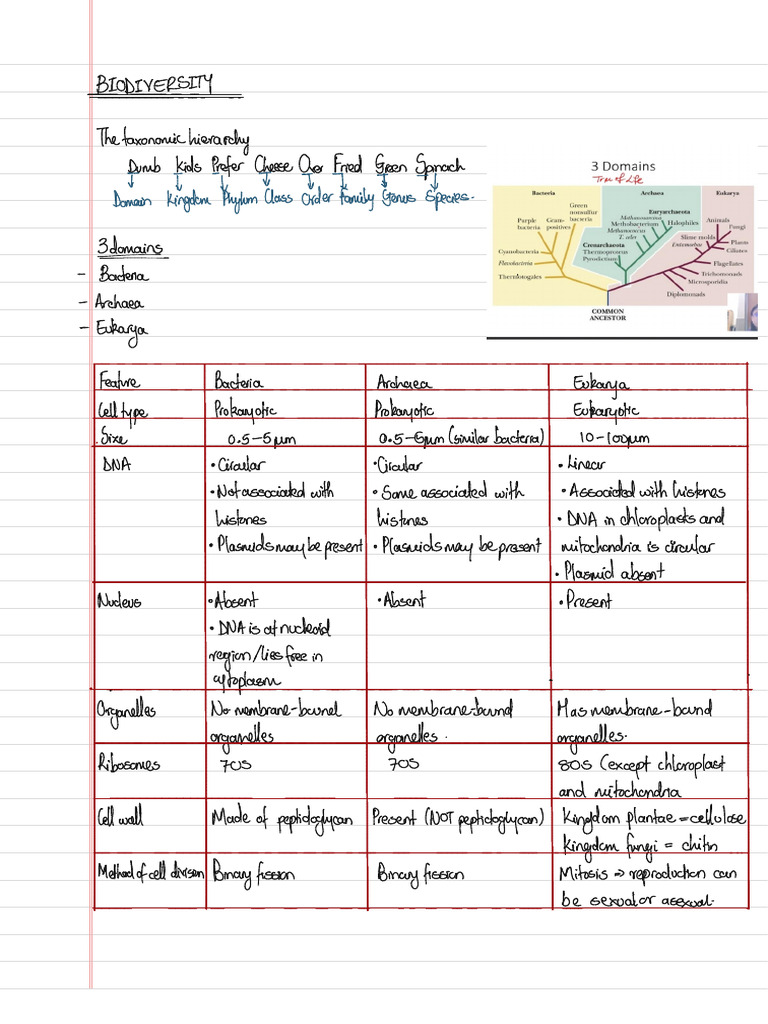 BIODIVERSITY
The taxonomic hierarchy
Dumb Kids Prefer Cheese Over Fried Green Spinach
Domain Kingdom Phylum Class Order Family Genus Species.
3 Domains
Tree of Life
Bacteria Archaea Eukarya
Green nonsulfur bacteria
Purple bacteria
Gram-positives
Cyanobacteria
Flavobacteria
Thermotogales
Euryarchaeota
Methanosarcina
Methobacterium Halophiles
Methanococcus
T. celer
Crenarchaeota
Thermoproteus
Pyrodictium
Animals
Fungi
Slime molds
Entamoebae
Plants
Ciliates
Flagellates
Trichomonads
Microsporidia
Diplomonads
COMMON
ANCESTOR
3 domains
- Bacteria
- Archaea
- Eukarya
Feature Bacteria Archaea Eukarya
Cell type Prokaryotic Prokaryotic Eukaryotic
Size 0.5-5μm 0.5-5μm (similar bacteria) 10-100μm
DNA • Circular • Circular • Linear
• Not associated with • Some associated with • Associated with histones
histones histones • DNA in chloroplasts and
• Plasmids may be present • Plasmids may be present mitochondria is circular
• Plasmid absent
Nucleus • Absent • Absent • Present
• DNA is at nucleoid
region/lies free in
cytoplasm
Organelles No membrane-bound No membrane-bound Has membrane-bound
organelles organelles. organelles.
Ribosomes 70S 70S 80S (except chloroplast
and mitochondria
Cell wall Made of peptidoglycan Present (NOT peptidoglycan) Kingdom plantae = cellulose
Kingdom fungi = chitin
Method of cell division Binary fission Binary fission Mitosis → reproduction can
be sexual or asexual.